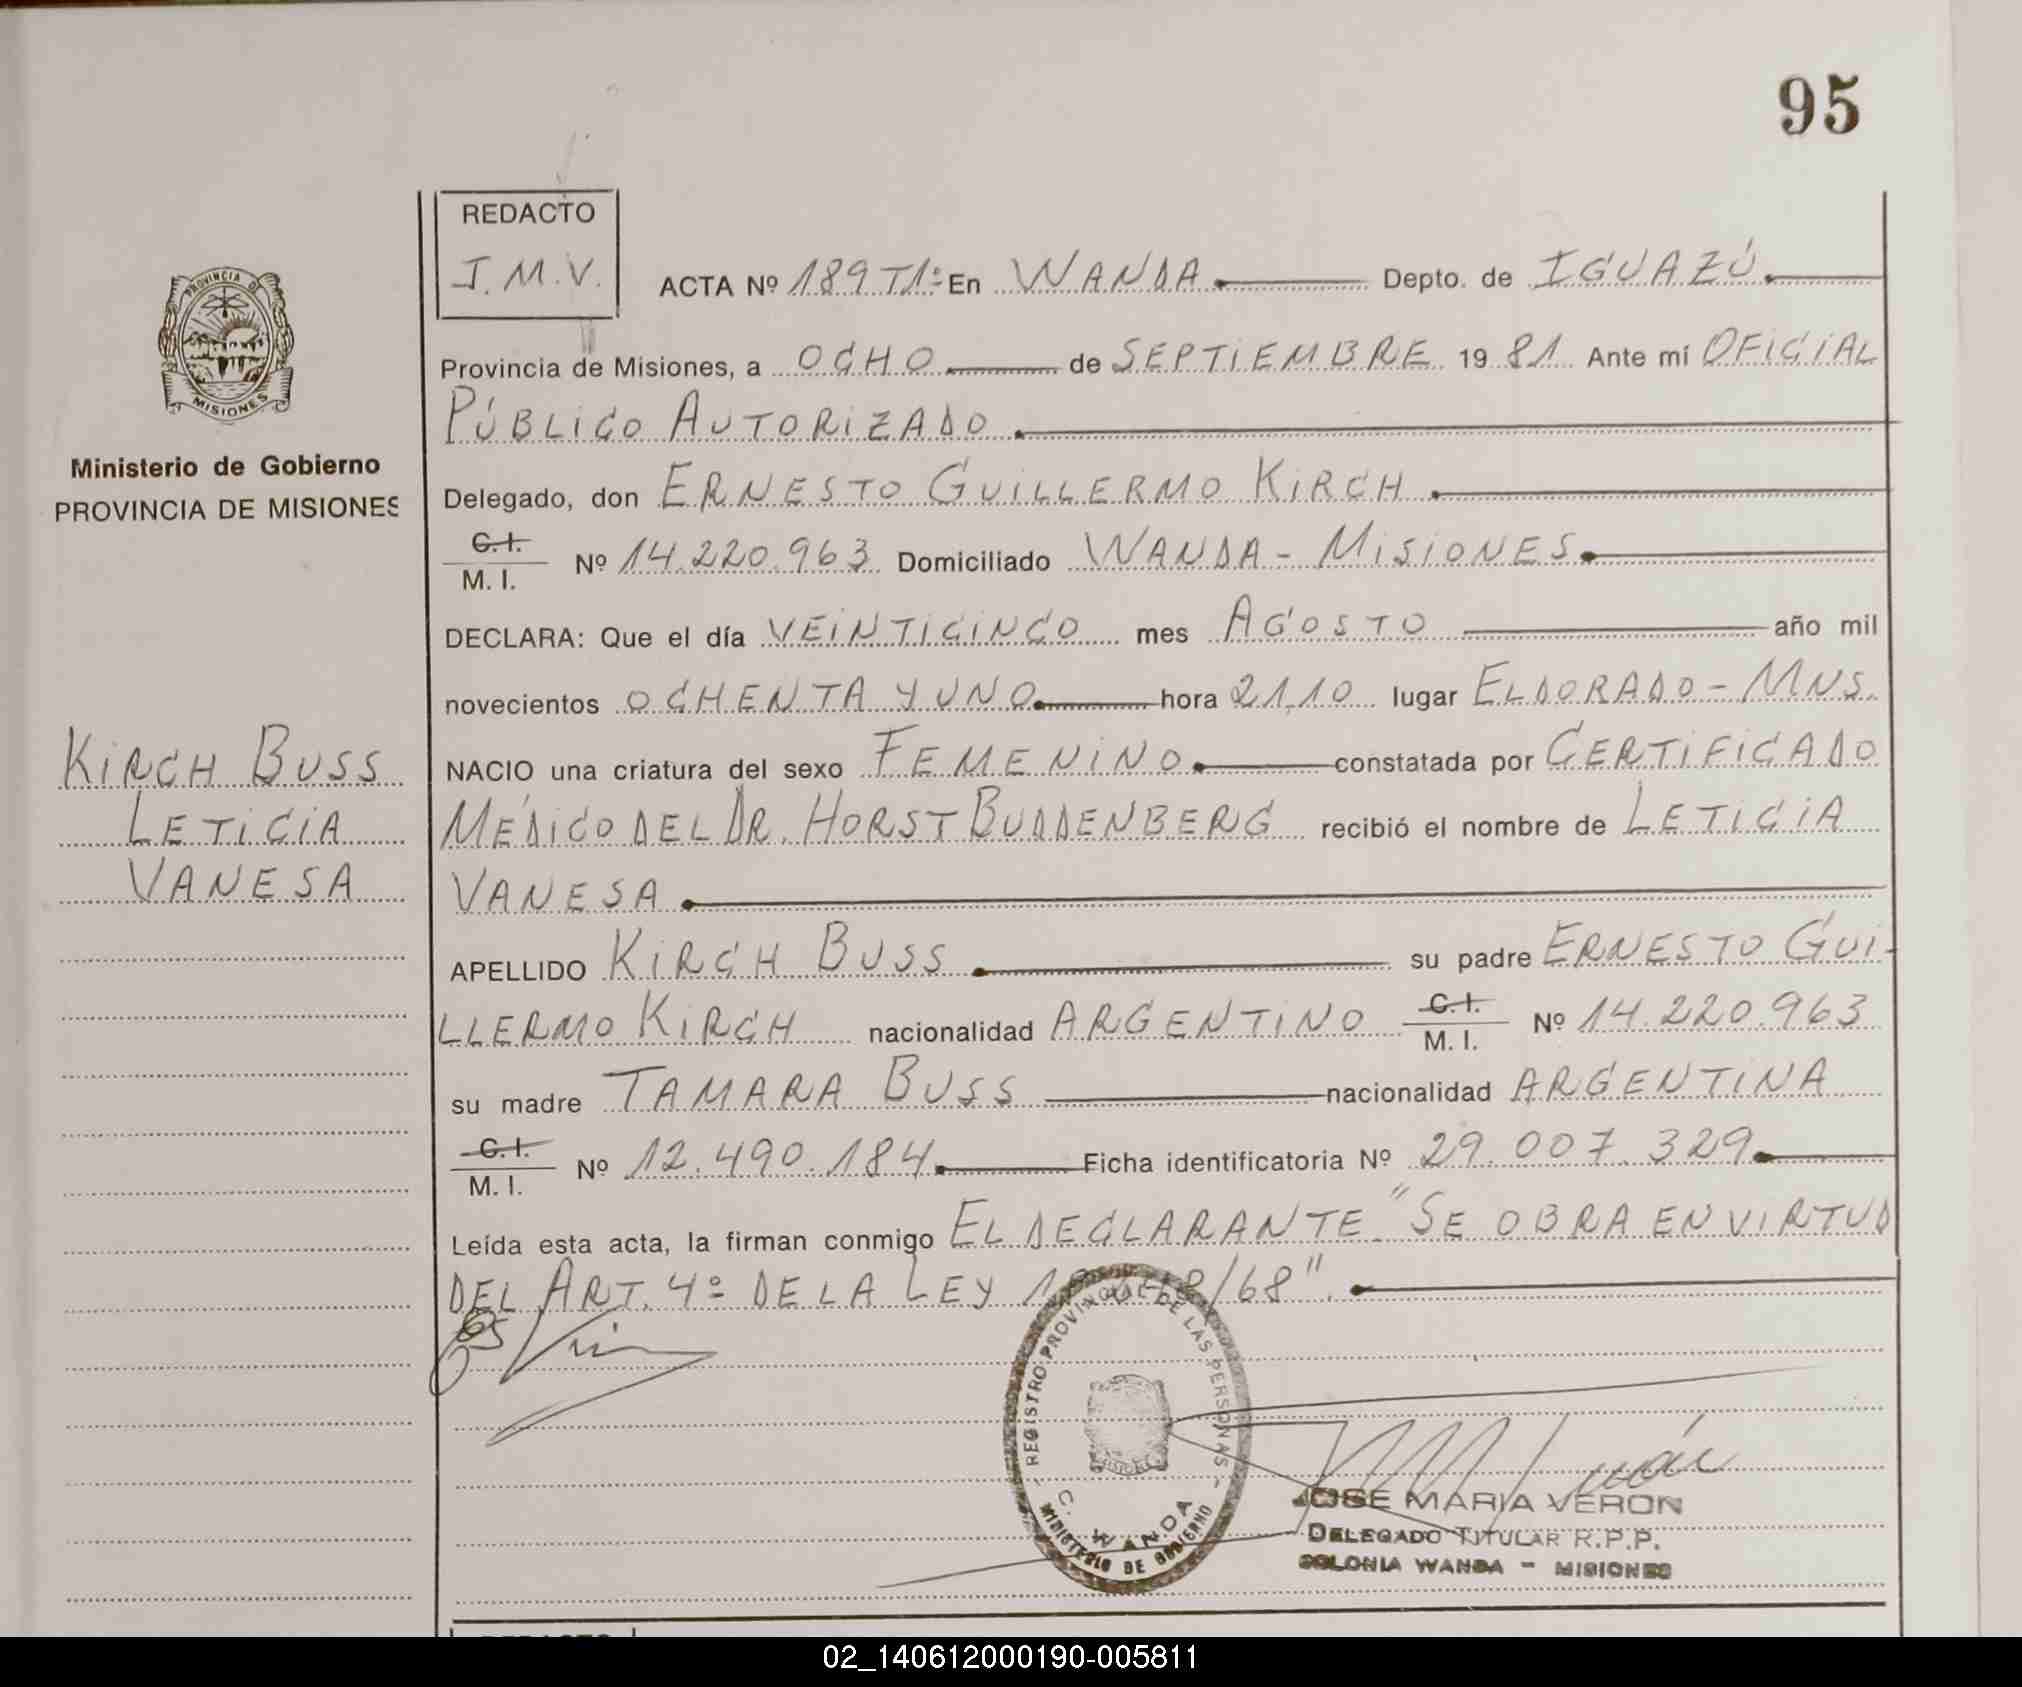 95
REDACTO
J.M.V.
ACTA Nº 189 T1º En WANDA Depto. de IGUAZÚ
Provincia de Misiones, a OCHO de SEPTIEMBRE 1981 Ante mí OFICIAL
PÚBLICO AUTORIZADO
Delegado, don ERNESTO GUILLERMO KIRCH
C. I.
M. I.
Nº 14.220.963 Domiciliado WANDA - MISIONES
DECLARA: Que el día VEINTICINCO mes AGOSTO año mil
novecientos OCHENTA Y UNO hora 21,10 lugar ELDORADO - MNS.
NACIO una criatura del sexo FEMENINO constatada por CERTIFICADO
MÉDICO DEL DR. HORST BUDDENBERG recibió el nombre de LETICIA
VANESA
APELLIDO KIRCH BUSS su padre ERNESTO GUI-
LLERMO KIRCH nacionalidad ARGENTINO C. I. M. I. Nº 14.220.963
su madre TAMARA BUSS nacionalidad ARGENTINA
C. I.
M. I.
Nº 12.490.184 Ficha identificatoria Nº 29.007.329
Leída esta acta, la firman conmigo EL DECLARANTE "SE OBRA EN VIRTUD
DEL ART. 4º DE LA LEY /68".
PROVINCIA DE
MISIONES
Ministerio de Gobierno
PROVINCIA DE MISIONES
KIRCH BUSS
LETICIA
VANESA
REGISTRO PROVINCIAL DE LAS PERSONAS
C. WANDA
MINISTERIO DE GOBIERNO
JOSE MARIA VERON
DELEGADO TITULAR R.P.P.
COLONIA WANDA - MISIONES
02_140612000190-005811